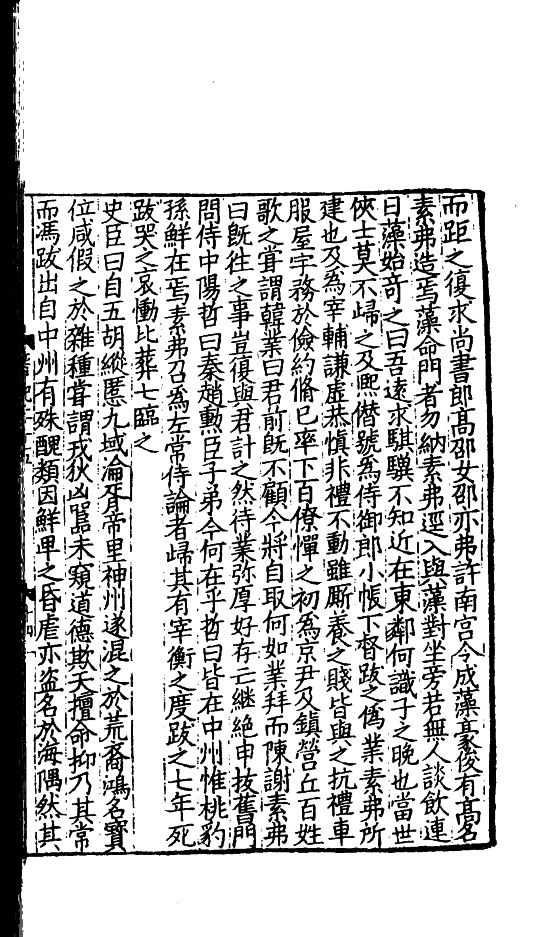 而距之復求尚書郎髙邵女邵亦弗許南宮令成藻豪俊有髙名
素弗造焉藻命門者勿納素弗逕入與藻對坐旁若無人談飲連
日藻始奇之曰吾遠求騏驥不知近在東鄰何識子之晚也當世
俠士莫不歸之及熈僣號為侍御郎小帳下督跋之偽業素弗所
建也及為宰輔謙虛恭慎非禮不動雖厮養之賤皆與之抗禮車
服屋宇務於儉約脩已率下百僚憚之初為京尹及鎮營丘百姓
歌之嘗謂韓業曰君前旣不顧今將自取何如業拜而陳謝素弗
曰旣往之事豈復與君計之然待業弥厚好存亡継絶申拔舊門
問侍中陽哲曰秦趙勲臣子弟今何在乎哲曰皆在中州惟桃豹
孫鮮在焉素弗召為左常侍論者歸其有宰衡之度跋之七年死
跋哭之哀慟比葬七臨之
史臣曰自五胡縱慝九域淪胥帝里神州遂混之於荒裔鴻名寶
位咸假之於雜種嘗謂戎狄凶嚚未窺道德欺天擅命抑乃其常
而馮跋出自中州有殊醜類因鮮卑之昏虐亦盜名於海隅然其